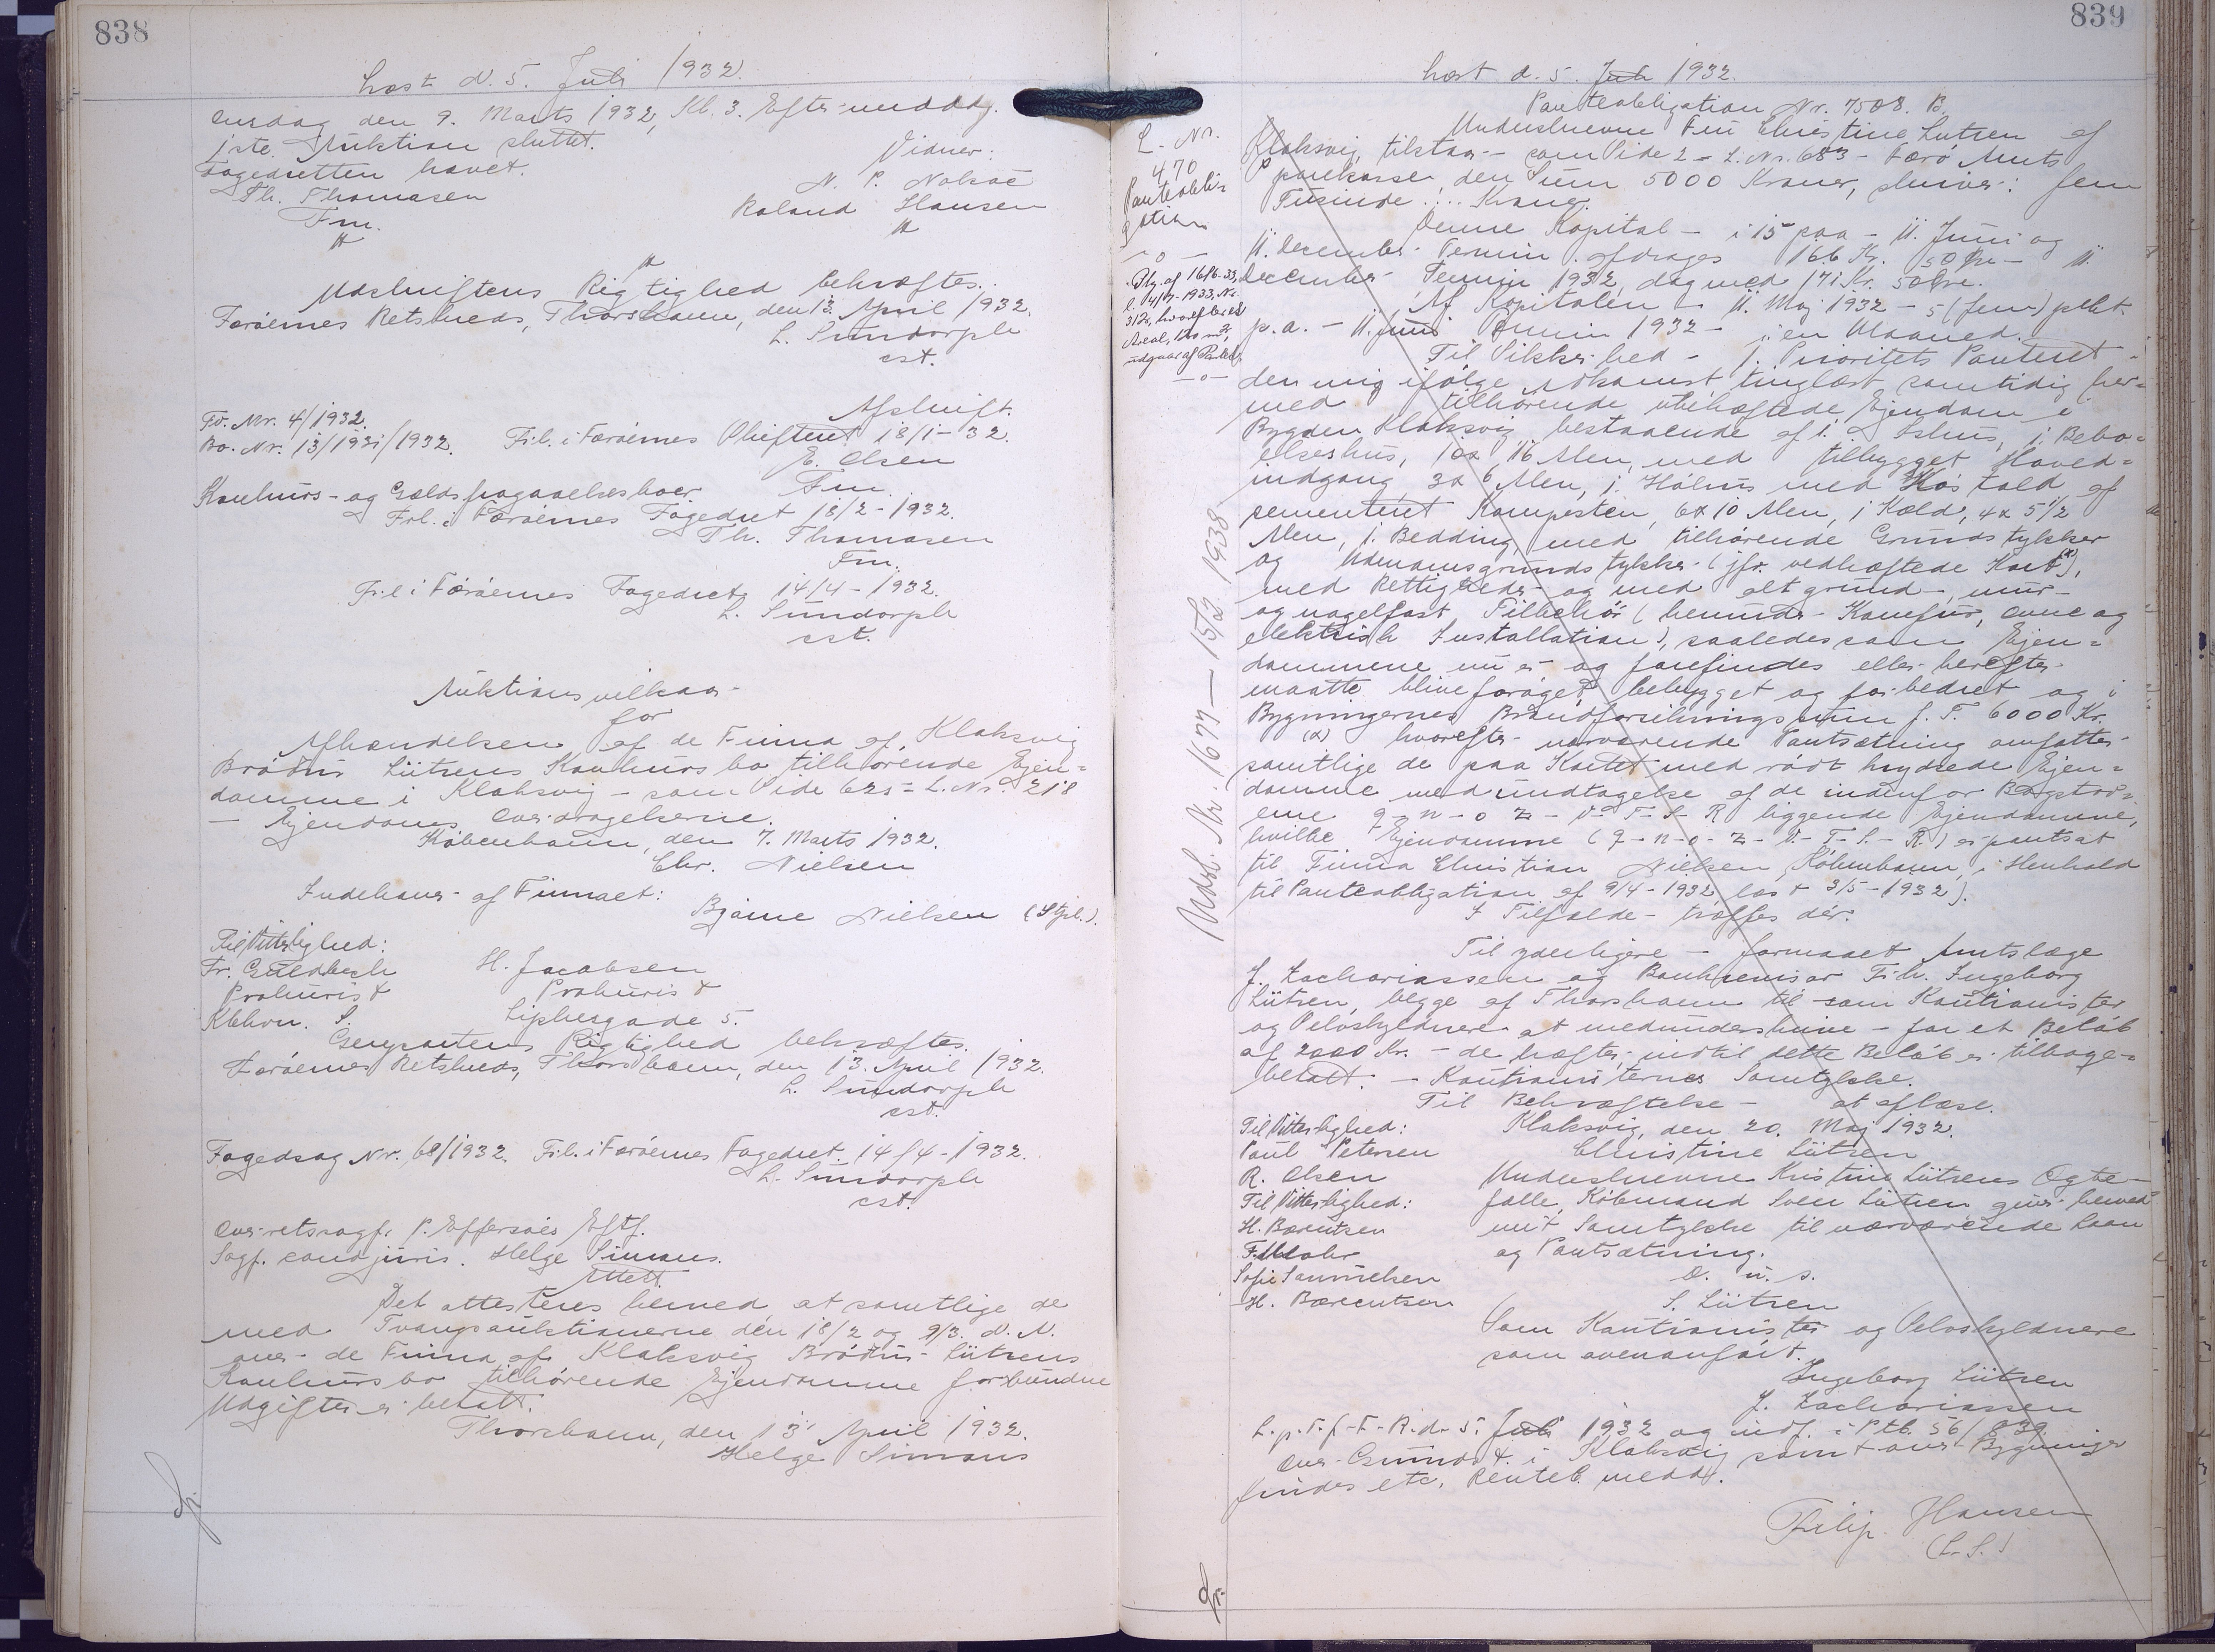 838
Læst d. 5. Juli 1932.
Onsdag den 9. Marts 1932, Kl. 3. Eftermiddag.
1ste Auktion sluttet.
Fogedretten hævet.
Vidner:
Th. Thomasen
N. P. Nolsøe
Fm.
Roland Hansen
Udskriftens Rigtighed bekræftes.
Færøernes Retskreds, Thorshavn, den 13. April 1932.
L. Sundorph
cst.
Afskrift.
Fo. Nr. 4/1932.
Bo. Nr. 13/1931/1932. Frl. i Færøernes Skifteret 18/1-32.
E. Olsen
Fm.
Konkurs- og Gældsfragaaelsesboer.
Frl. i Færøernes Fogedret 18/2-1932.
Th. Thomasen
Fm.
Frl. i Færøernes Fogedret 14/4-1932.
L. Sundorph
cst.
Auktionsvilkaar
for
Afhændelsen af de Firma af Klaksvig
Brødrene Lützens Konkursbo tilhørende Ejen=
domme i Klaksvig - som Side 625 = L. Nr. 218
- Ejendomsoverdragelserne.
København, den 7. Marts 1932.
Chr. Nielsen
Indehaver af Firmaet:
Bjarne Nielsen (Stpl.).
Til Vitterlighed:
Fr. Guldbech
H. Jacobsen
Prokurist
Prokurist
Kbhvn. S.
Liphesgade 5.
Genpartens Rigtighed bekræftes.
Færøernes Retskreds, Thorshavn, den 13. April 1932.
L. Sundorph
cst.
Fogedsag Nr. 68/1932. Frl. i Færøernes Fogedret 14/4-1932.
L. Sundorph
cst.
Overretssagf. P. Effersøes Eftf.
Sagf. cand juris. Helge Simons.
Attest.
Det attesteres herved at samtlige de
med Tvangsauktionerne den 18/2 og 9/3. d. A.
over de Firma af Klaksvig Brødrene Lützens
Konkursbo tilhørende Ejendomme forbundne
Udgifter er betalt.
Thorshavn, den 13 April 1932.
Helge Simons
839
Læst d. 5. Juli 1932.
Panteobligation Nr. 7508. B.
L. Nr.
470
Panteobli=
gation
- o -
Undershrevne Fru Christine Lützen af
Klaksvig, tilstaar - som Side 2 = L. Nr. 683 - Færø Amts
Sparekasse, den Sum 5000 Kroner, skriver: fem
Tusinde .... Kroner.
Denne Kapital - i 15 paa - 11. Juni og
11. December Termin afdrages 166 Kr. 50 Øre - 11.
December Termin 1932, dog med 171 Kr. 50 Øre.
Af Kapitalen - 11. Maj 1932 - 5 (fem) pCt.
p. a. - 11. Juni Termin 1932 - : en Maaned.
Til Sikkerhed - 1. Prioritets Panteret -
den mig ifølge Adkomst tinglæst samtidig her=
med tilhørende ubehæftede Ejendom i
Bygden Klaksvig bestaaende af 1. Ishus, 1. Bebo=
elseshus, 10 x 16 Alen, med tilbygget Hoved=
indgang 3 x 6 Alen, 1. Høhus med Kostald af
cementeret Kampesten, 6 x 10 Alen, 1 Kæld, 4 x 5 1/2
Alen, 1. Bedding, med tilhørende Grundstykker
og Udmarksgrundstykker (jfr. vedhæftede Kort (x)),
med Rettigheder og med alt grund-, mur-
og nagelfast Tilbehør (herunder Komfur, Ovne og
elektrisk Installation), saaledes som Ejen=
dommene nu er og forefindes eller herefter
maatte blive forøget, bebygget og forbedret og i
Bygningernes Brandforsikringssum p. T. 6000 Kr.
(x) hvorefter nærværende Pantsætning omfatter
samtlige de paa Kortet med rødt krydsede Ejen=
domme med undtagelse af de indenfor Bogstav=
erne q-n-o-Z-V-T-S-R liggende Ejendomme,
hvilke Ejendomme (q-n-o-Z-V-T-S-R) er pantsat
til Firma Christian Nielsen, København, i Henhold
til Panteobligation af 9/4-1932, læst 3/5-1932).
I Tilfælde - træffes dér.
Til yderligere - formaaet Amtslæge
J. Zachariassen og Bankrevisor Frk. Ingeborg
Lützen, begge af Thorshavn til som Kautionister
og Selvskyldnere at medunderskrive - for et Beløb
af 2000 Kr. - de hæfter indtil dette Beløb er tilbage=
betalt. - Kautionisternes Samtykke.
Til Bekræftelse - at aflæse.
Klaksvig, den 20. Maj 1932.
Christine Lützen
Til Vitterlighed:
Paul Petersen
R. Olsen
Til Vitterlighed:
H. Bærentsen
F. Mohr
Sofie Samuelsen
H. Bærentsen
Underskrevne Kristine Lützens Ægte=
fælle, Købmand Sven Lützen giver herved
mit Samtykke til nærværende Laan
og Pantsætning.
D. u. s.
S. Lützen
Som Kautionister og Selvskyldnere
som ovenanført.
Ingeborg Lützen
J. Zachariassen
L. p. T. f. F. R. d. 5. Juli 1932 og indf. i Ptb. 56/839.
Over Grundst. i Klaksvig samt over Bygninger
findes etc. Renteb. medd.
Filip Hansen
(L. S.)
Udsl. Nr. 1677 — 15/2 1938